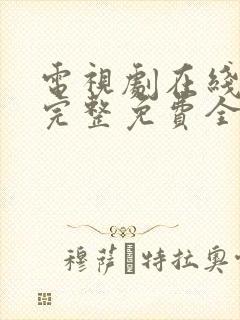 電視劇在綫
完整免費全
穆萨 特拉奥